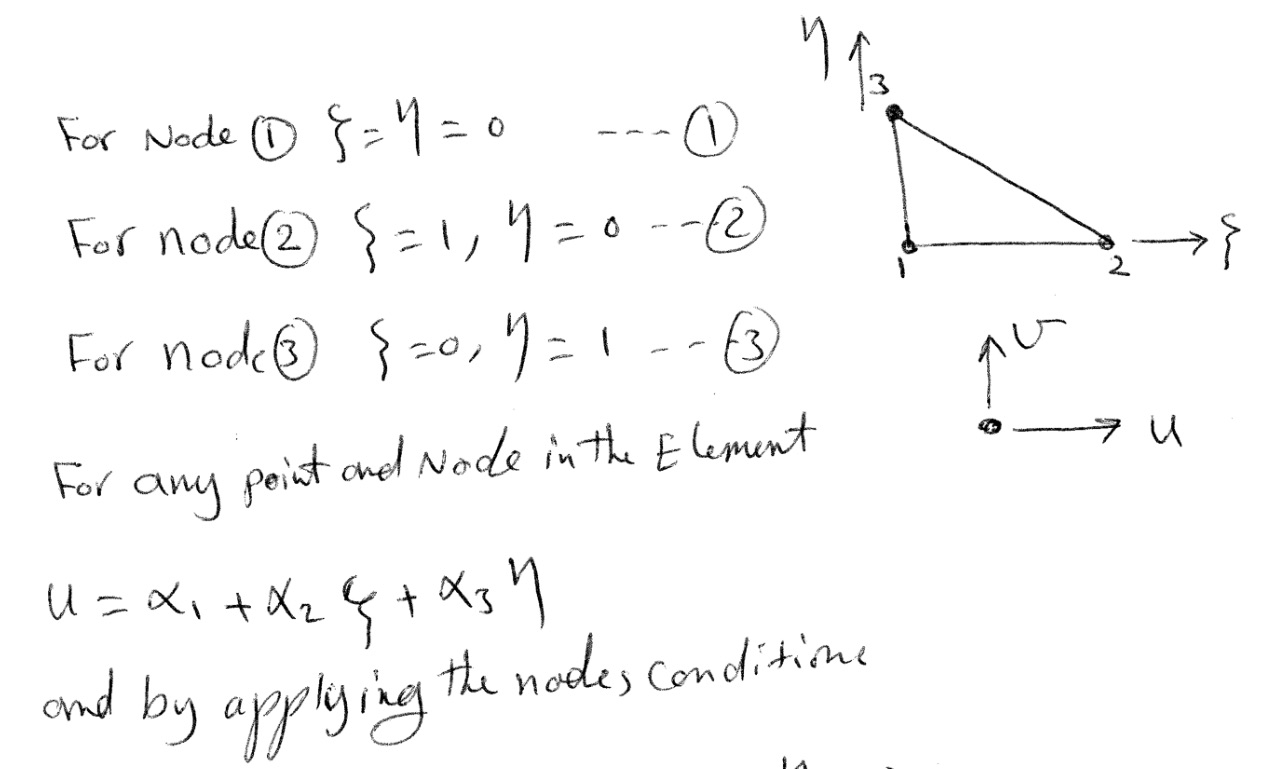 For Node ① ξ = η = 0 --- ①
For node ② ξ = 1, η = 0 --- ②
For node ③ ξ = 0, η = 1 --- ③
For any point and Node in the Element
u = α₁ + α₂ ξ + α₃ η
and by applying the nodes condition
η
3
1
2
ξ
v
u